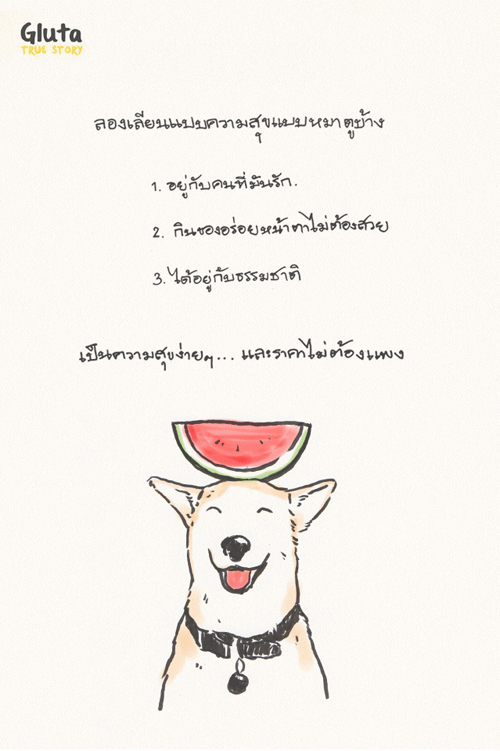 Gluta
TRUE STORY
ลองเลียนแบบความสุขแบบหมาตูบ้าง
1. อยู่กับคนที่มันรัก.
2. กินของอร่อยหน้าตาไม่ต้องสวย
3. ได้อยู่กับธรรมชาติ
เป็นความสุขง่ายๆ... และราคาไม่ต้องแพง